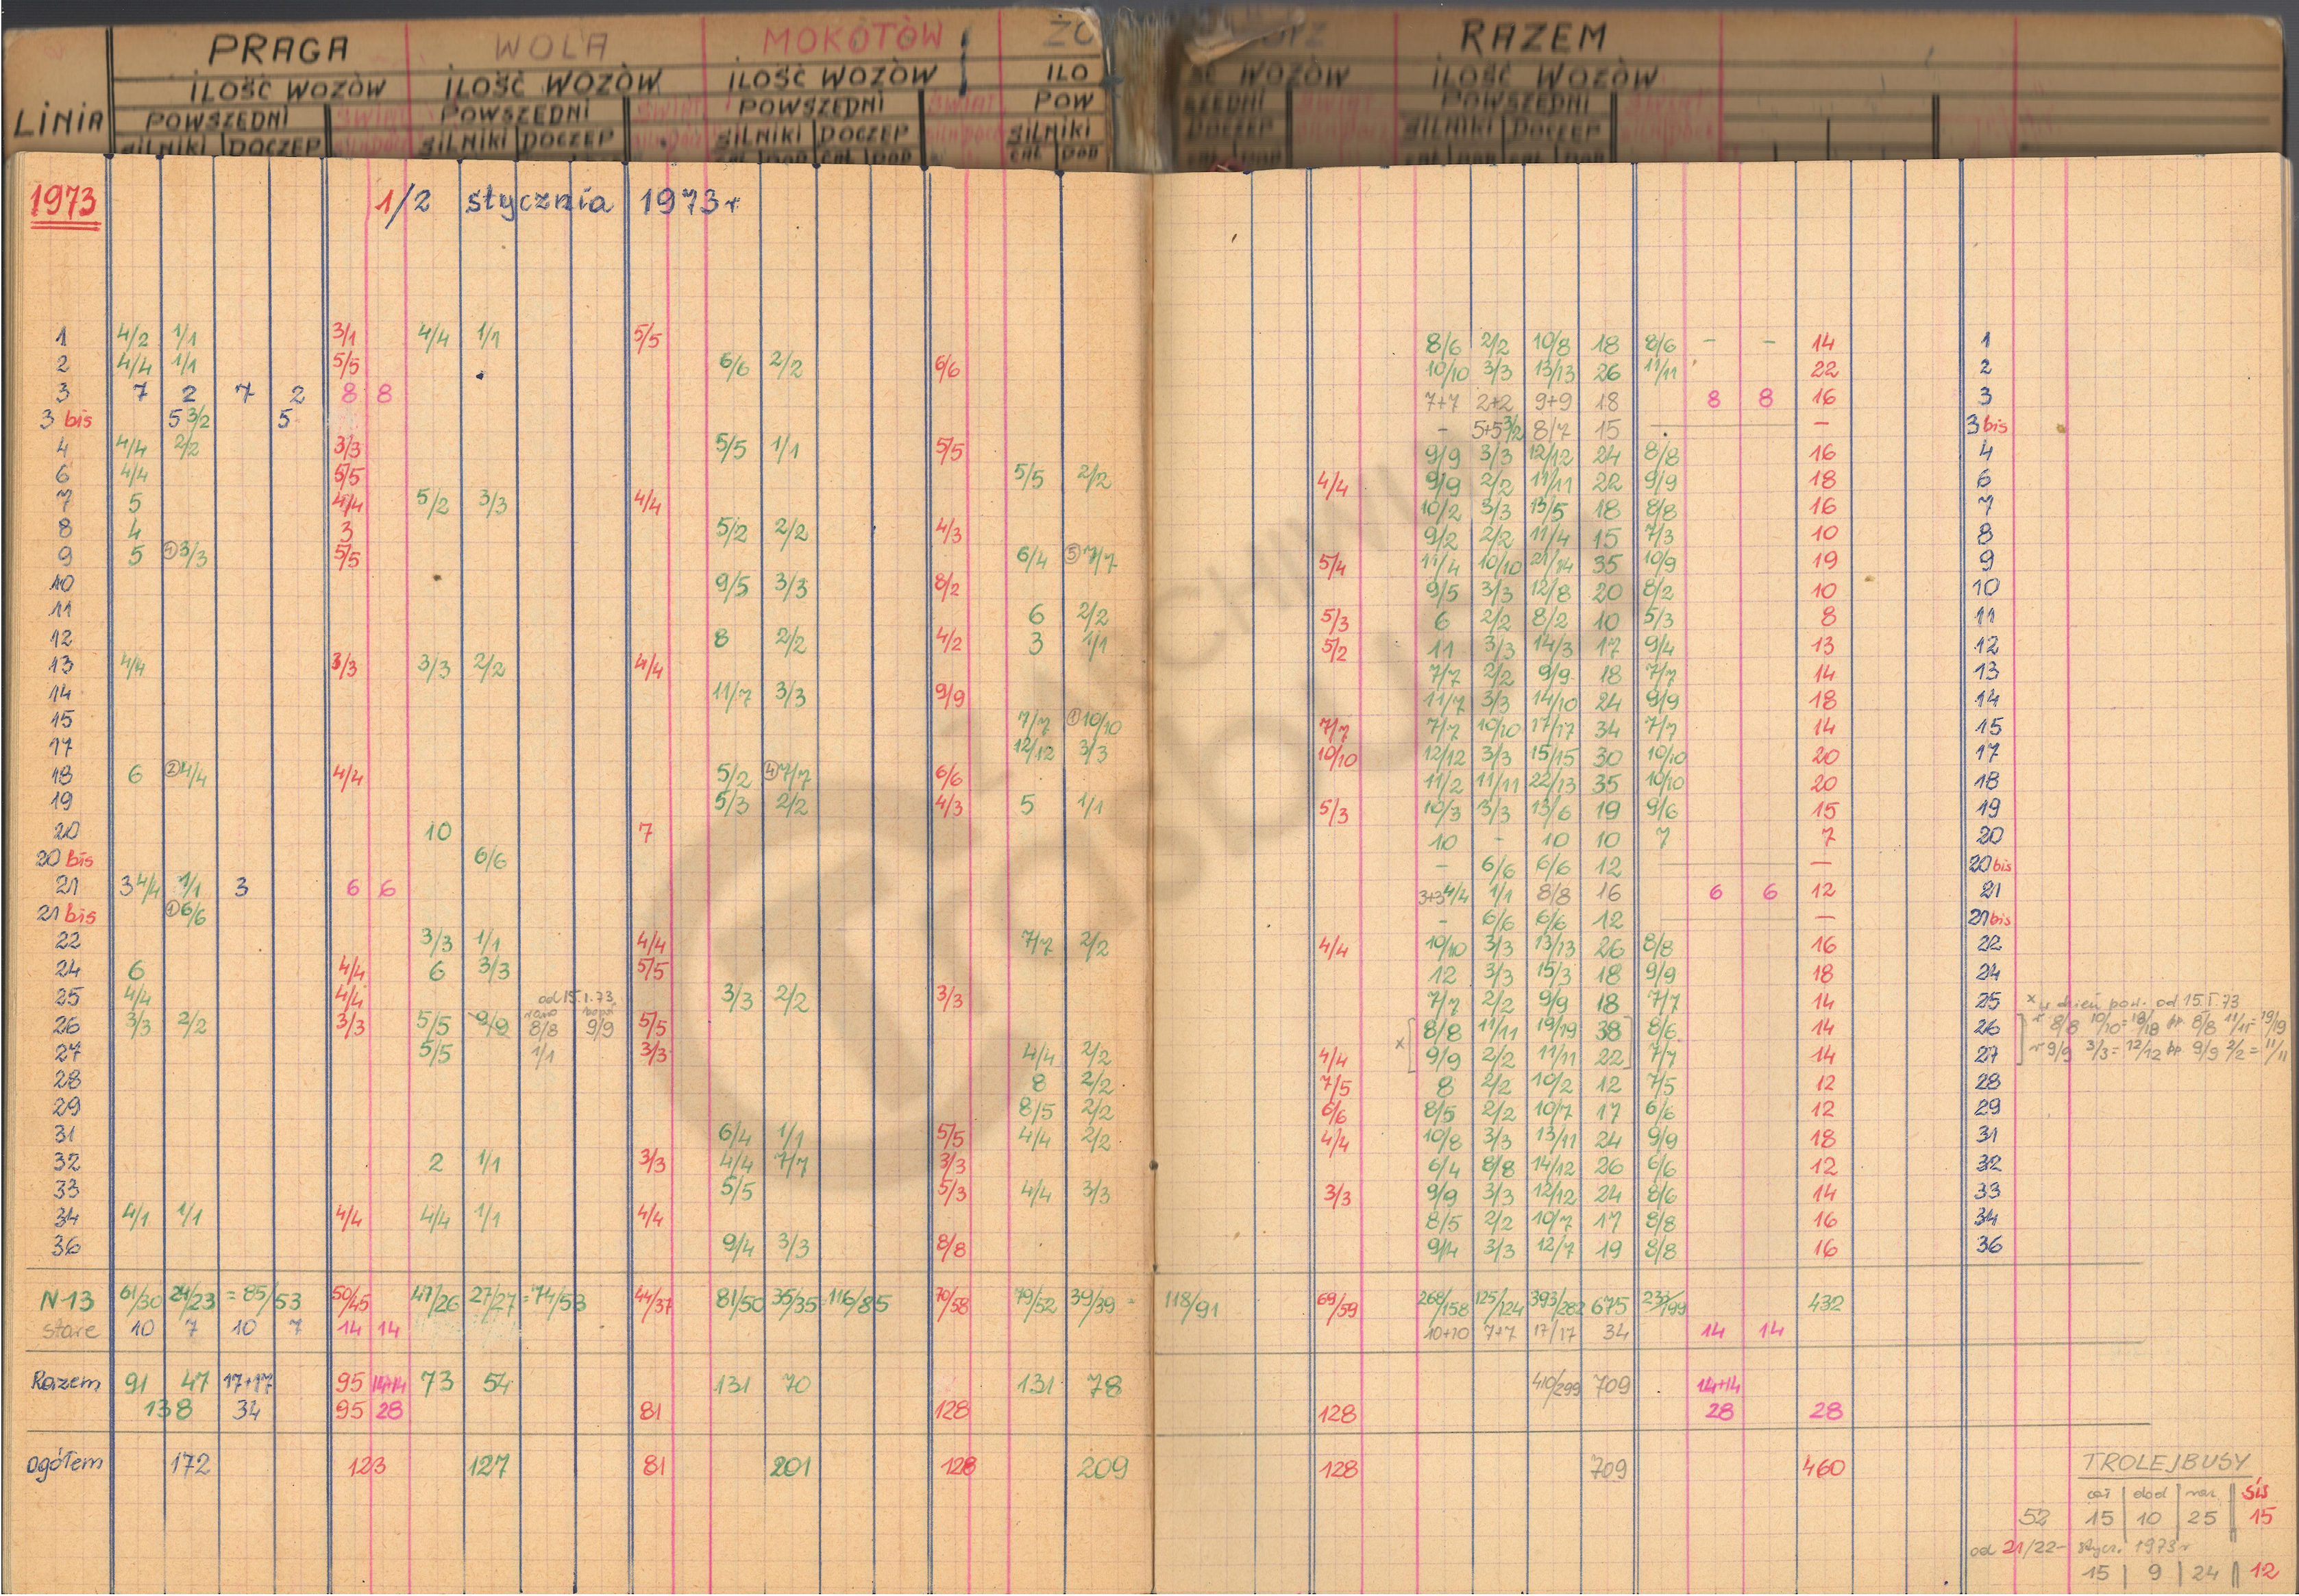 PRAGA WOLA MOKOTÓW ŻO RZ RAZEM
ILOŚĆ WOZÓW ILOŚĆ WOZÓW ILOŚĆ WOZÓW ILO ŚĆ WOZÓW ILOŚĆ WOZÓW
LINIA POWSZEDNI ŚWIĄT POWSZEDNI ŚWIĄT POWSZEDNI ŚWIĄT POW SZEDNI ŚWIĄT POWSZEDNI ŚWIĄT
SILNIKI DOCZEP SILNIKI DOCZEP SILNIKI DOCZEP SILNIKI DOCZEP SILNIKI DOCZEP
1973 1/2 stycznia 1973 r
1 4/2 1/1 3/1 4/4 1/1 5/5 8/6 2/2 10/8 18 8/6 - - 14 1
2 4/4 1/1 5/5 6/6 2/2 6/6 10/10 3/3 13/13 26 11/11 22 2
3 7 2 7 2 8 8 7+7 2+2 9+9 18 8 8 16 3
3 bis 5 3/2 5 - 5+5 3/2 8/7 15 — 3 bis
4 4/4 2/2 3/3 5/5 1/1 5/5 9/9 3/3 12/12 24 8/8 16 4
6 4/4 5/5 5/5 2/2 4/4 9/9 2/2 11/11 22 9/9 18 6
7 5 4/4 5/2 3/3 4/4 10/2 3/3 13/5 18 8/8 16 7
8 4 3 5/2 2/2 4/3 9/2 2/2 11/4 15 7/3 10 8
9 5 ① 3/3 5/5 6/4 ⑤ 7/7 5/4 11/4 10/10 21/14 35 10/9 19 9
10 9/5 3/3 8/2 9/5 3/3 12/8 20 8/2 10 10
11 6 2/2 5/3 6 2/2 8/2 10 5/3 8 11
12 8 2/2 4/2 3 1/1 5/2 11 3/3 14/3 17 9/4 13 12
13 4/4 3/3 3/3 2/2 4/4 7/7 2/2 9/9 18 7/7 14 13
14 11/7 3/3 9/9 11/7 3/3 14/10 24 9/9 18 14
15 7/7 ① 10/10 7/7 7/7 10/10 17/17 34 7/7 14 15
17 12/12 3/3 10/10 12/12 3/3 15/15 30 10/10 20 17
18 6 ② 4/4 4/4 5/2 ④ 7/7 6/6 11/2 11/11 22/13 35 10/10 20 18
19 5/3 2/2 4/3 5 1/1 5/3 10/3 3/3 13/6 19 9/6 15 19
20 10 7 10 - 10 10 7 7 20
20 bis 6/6 - 6/6 6/6 12 — 20 bis
21 3 4/4 1/1 3 6 6 3+3 4/4 1/1 8/8 16 6 6 12 21
21 bis ① 6/6 - 6/6 6/6 12 — 21 bis
22 3/3 1/1 4/4 7/7 2/2 4/4 10/10 3/3 13/13 26 8/8 16 22
24 6 4/4 6 3/3 5/5 12 3/3 15/3 18 9/9 18 24
25 4/4 4/4 od 15.I.73 3/3 2/2 3/3 7/7 2/2 9/9 18 7/7 14 25 x w dzień pow. od 15.I.73
26 3/3 2/2 3/3 5/5 9/9 rano 8/8 popoł 9/9 5/5 8/8 11/11 19/19 38 8/6 14 26 r 8/8 10/10 = 18/18 pp 8/8 11/11 = 19/19
27 5/5 1/1 3/3 4/4 2/2 4/4 x 9/9 2/2 11/11 22 7/7 14 27 r 9/9 3/3 = 12/12 pp 9/9 2/2 = 11/11
28 8 2/2 7/5 8 2/2 10/2 12 7/5 12 28
29 8/5 2/2 6/6 8/5 2/2 10/7 17 6/6 12 29
31 6/4 1/1 5/5 4/4 2/2 4/4 10/8 3/3 13/11 24 9/9 18 31
32 2 1/1 3/3 4/4 7/7 3/3 6/4 8/8 14/12 26 6/6 12 32
33 5/5 5/3 4/4 3/3 3/3 9/9 3/3 12/12 24 8/6 14 33
34 4/1 1/1 4/4 4/4 1/1 4/4 8/5 2/2 10/7 17 8/8 16 34
36 9/4 3/3 8/8 9/4 3/3 12/7 19 8/8 16 36
N-13 61/30 24/23 = 85/53 50/45 47/26 27/27 = 74/53 44/37 81/50 35/35 = 116/85 70/58 79/52 39/39 = 118/91 69/59 268/158 125/124 393/282 675 233/199 432
stare 10 7 10 7 14 14 10+10 7+7 17/17 34 14 14
Razem 91 47 17+17 95 14+14 73 54 131 70 131 78 410/299 709 14+14
138 34 95 28 81 128 128 28 28
ogółem 172 123 127 81 201 128 209 128 709 460
TROLEJBUSY
cał dod raz św
52 15 10 25 15
od 21/22- stycz. 1973 r
15 9 24 12